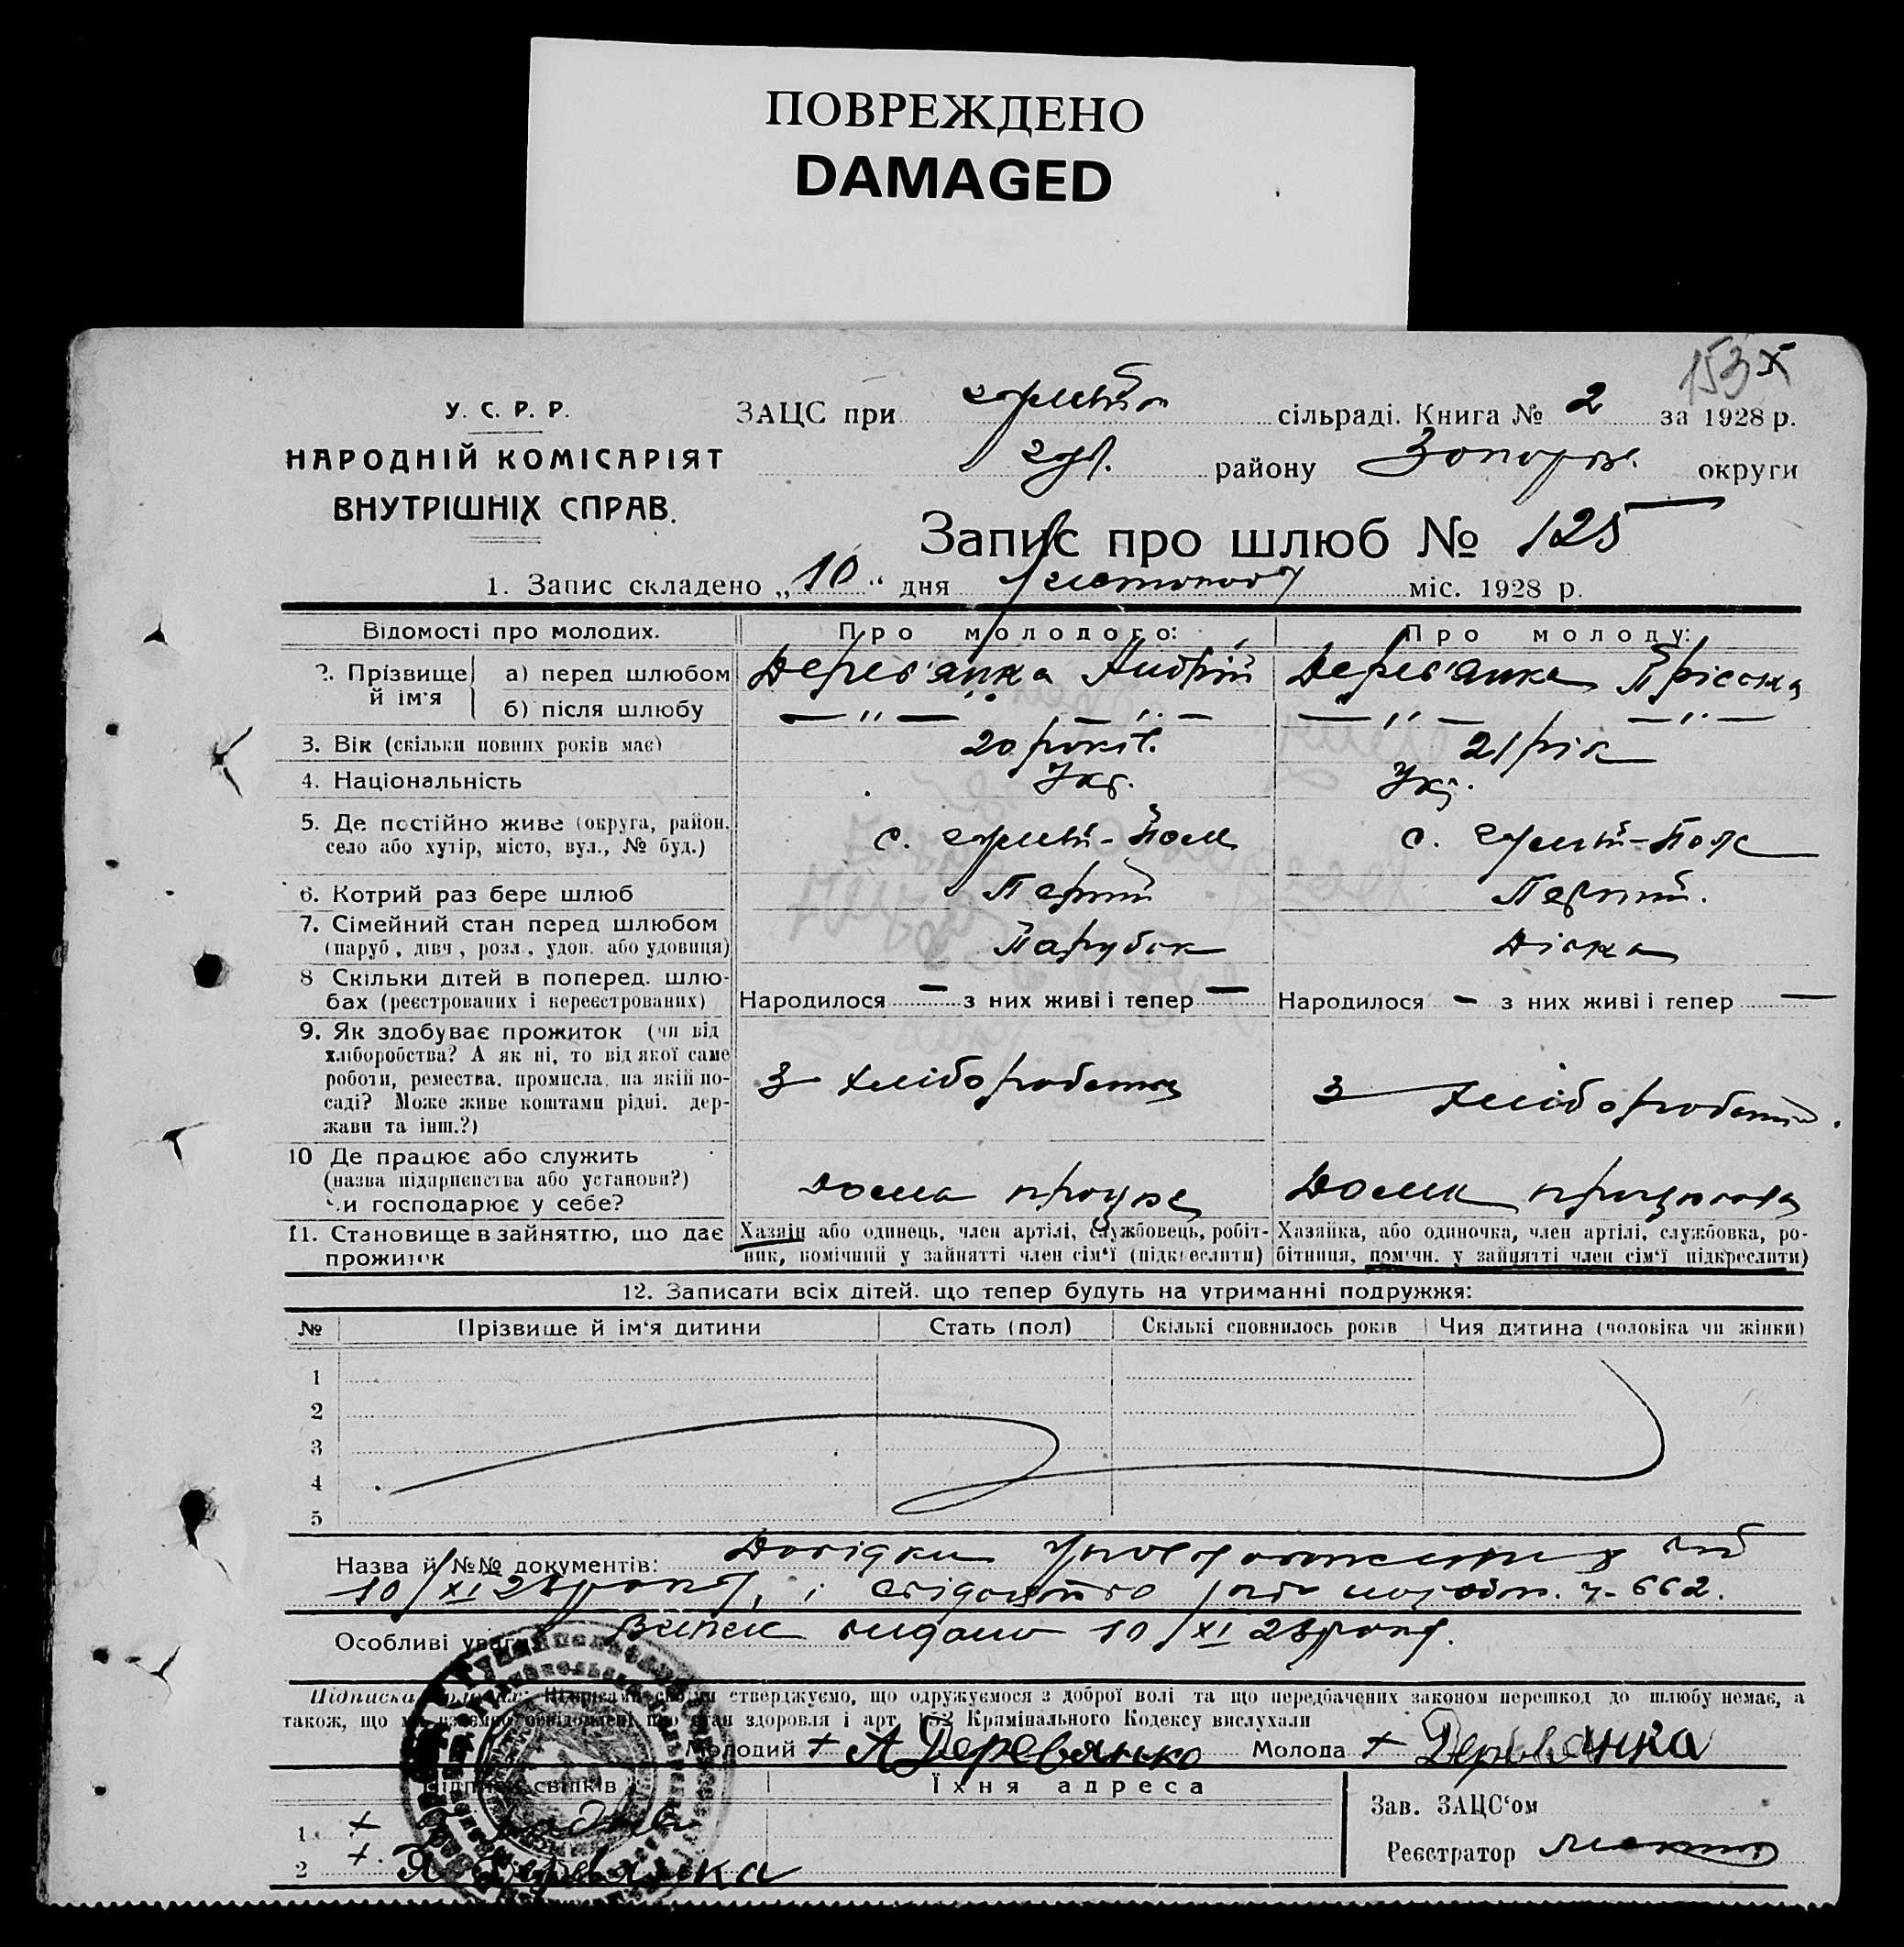 ПОВРЕЖДЕНО
DAMAGED
153
У. С. Р. Р.
НАРОДНІЙ КОМІСАРІЯТ
ВНУТРІШНІХ СПРАВ.
ЗАЦС при сільраді. Книга № 2 за 1928 р.
району Запоріж. округи
Запис про шлюб № 125
1. Запис складено „10“ дня Листопаду міс. 1928 р.
Відомості про молодих. Про молодого: Про молоду:
2. Прізвище й ім'я
а) перед шлюбом Дерев'янка Андрій Дерев'янка Пріська
б) після шлюбу — " — — " — — " — — " —
3. Вік (скільки повних років має) 20 років. 21 рік
4. Національність Укр. Укр.
5. Де постійно живе (округа, район, село або хутір, місто, вул., № буд.) с. Гуляй-Поле с. Гуляй-Поле
6. Котрий раз бере шлюб Перший Перший.
7. Сімейний стан перед шлюбом
(паруб., дівч., розл., удов. або удовиця) Парубок Дівка
8 Скільки дітей в поперед. шлюбах (реєстрованих і нереєстрованих) Народилося — з них живі і тепер — Народилося — з них живі і тепер —
9. Як здобуває прожиток (чи від
хліборобства? А як ні, то від якої саме
роботи, ремества, промисла, на якій по-
саді? Може живе коштами рідні, дер-
жави та інш.?)
З хліборобства З хліборобства.
10 Де працює або служить
(назва підприємства або установи?)
Чи господарює у себе?
Дома працює Дома
11. Становище в зайняттю, що дає
прожиток
Хазяїн або одинець, член артілі, службовець, робіт-
ник, помічний у зайнятті член сім'ї (підкреслити)
Хазяйка, або одиночка, член артілі, службовка, ро-
бітниця, помічн. у зайнятті член сім'ї підкреслити)
12. Записати всіх дітей, що тепер будуть на утриманні подружжя:
№ Прізвище й ім'я дитини Стать (пол) Скількі сповнилось років Чия дитина (чоловіка чи жінки)
1
2
3
4
5
Назва й №№ документів: Довідки від
10/XI 28 року, і ч. 662.
Особливі уваги: видано 10/XI 28 року.
стверджуємо, що одружуємося з доброї волі та що передбачених законом перешкод до шлюбу немає, а
також, що стан здоровля і арт. Крямінального Кодексу вислухали
Молодий + А Деревьянко Молода + Деревьянка
Їхня адреса
Зав. ЗАЦС'ом
1 +
Реєстратор
2 + Я Деревьянка